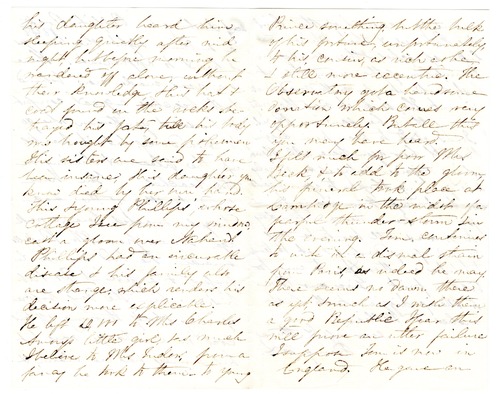 his daughter heard him
sleeping quietly after mid
night but before morning he
wandered off alone, without
their knowledge. His hat &
coat found in the rocks be-
trayed his fate, till his body
was brought by some fishermen
His sisters are said to have
been insane, & his daughter you
know died by her own hand.
This young Phillips whose
cottage I see from my window,
cast a gloom over Nahant
Phillips had an incurable
disease & his family also
are strange, which renders his
decision more explicable.
He left to Mrs Charles
little girl, as much
I believe to Mrs from a
fancy he took to them. To young
Prince something, but the bulk
of his fortune, unfortunately
to his cousin, as rich as he
& still more eccentric. The
Observatory got a handsome
donation which comes very
opportunely. But all this
you may have heard.
I felt much for poor Mrs
& to add to the gloom,
his funeral took place at
in the midst of a
fearful thunder-storm in
the evening. Tom continues
to write in a dismal strain
from Paris, as indeed he may
There seems no dawn there
as yet, & much as I wish them
a good Republic I fear this
will prove an utter failure
I suppose Tom is now in
England. He gave an